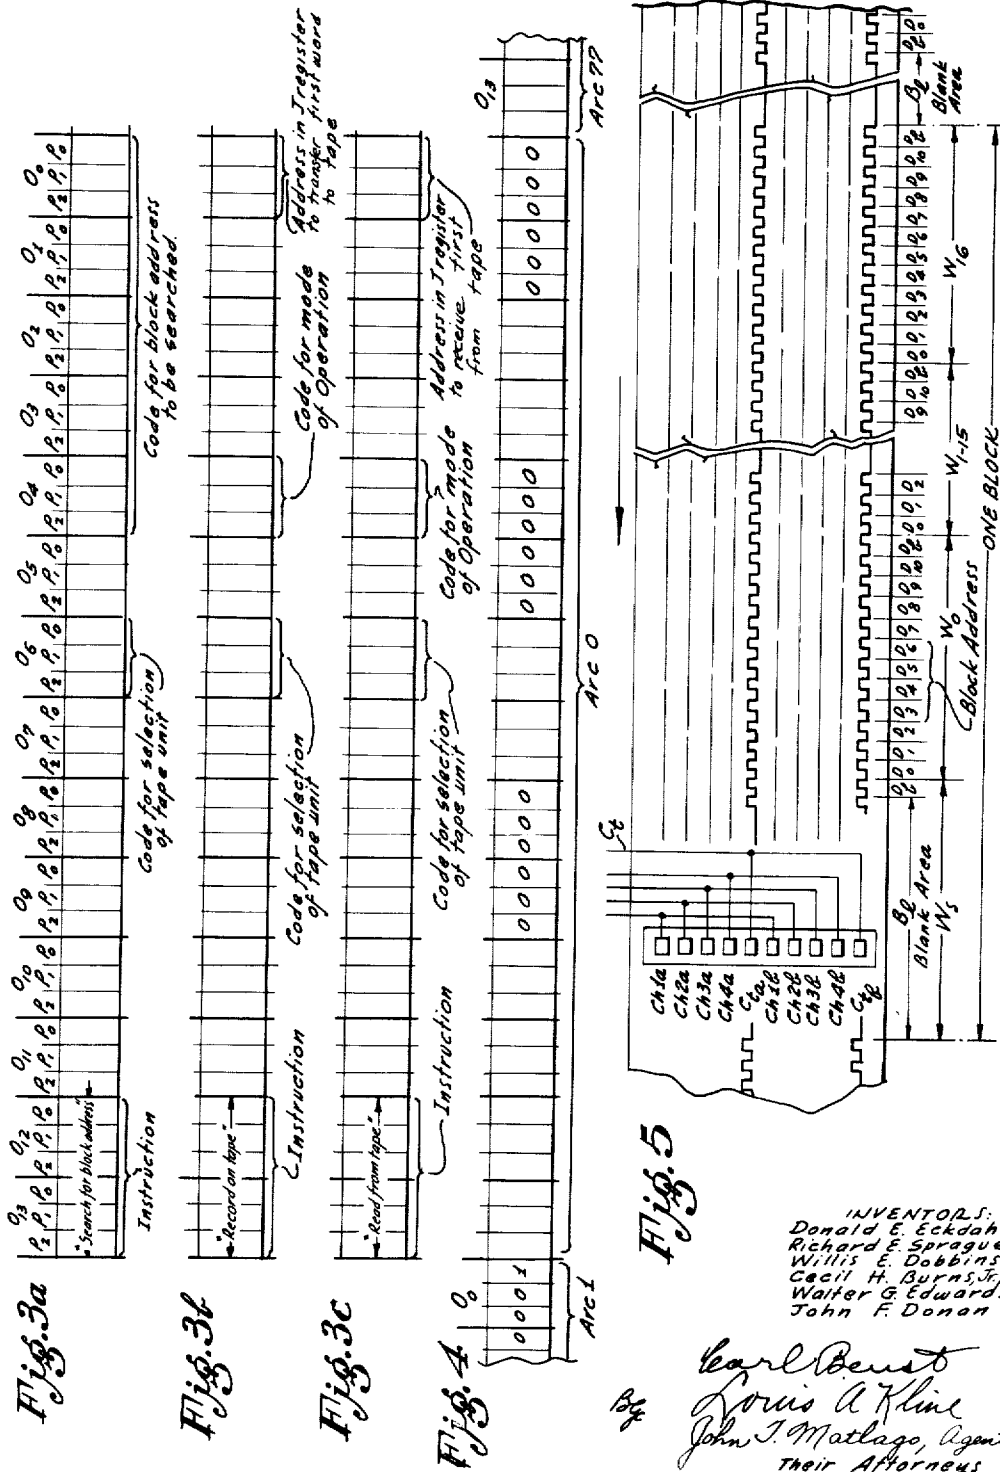 Fig.3a
O13 O12 O11 O10 O9 O8 O7 O6 O5 O4 O3 O2 O1 O0
P2 P1 P0 P2 P1 P0 P2 P1 P0 P2 P1 P0 P2 P1 P0 P2 P1 P0 P2 P1 P0 P2 P1 P0 P2 P1 P0 P2 P1 P0 P2 P1 P0 P2 P1 P0 P2 P1 P0 P2 P1 P0
"Search for block address"
Instruction
Code for selection
of tape unit
Code for block address
to be searched.
Fig.3b
"Record on tape"
Instruction
Code for selection
of tape unit
Code for mode
of Operation
Address in I register
to transfer first word
to tape
Fig.3c
"Read from tape"
Instruction
Code for selection
of tape unit
Code for mode
of Operation
Address in I register
to receive first
from tape
Fig.4
O0 O13
0 0 0 1 0 0 0 0 0 0 0 0 0 0 0 0
Arc 1 Arc 0 Arc 77
Fig.5
Ct
Ch1a
Ch2a
Ch3a
Ch4a
Cta
Ch1b
Ch2b
Ch3b
Ch4b
Ctb
Bl
Blank Area
Ws
Block Address
W0
W1-15
W16
ONE BLOCK
Bl
Blank
Area
INVENTORS:
Donald E. Eckdah
Richard E. Sprague
Willis E. Dobbins
Cecil H. Burns, Jr.
Walter G. Edward
John F. Donan
By
Carl Beust
Louis A Kline
John J. Matlago, Agen
Their Attorneys